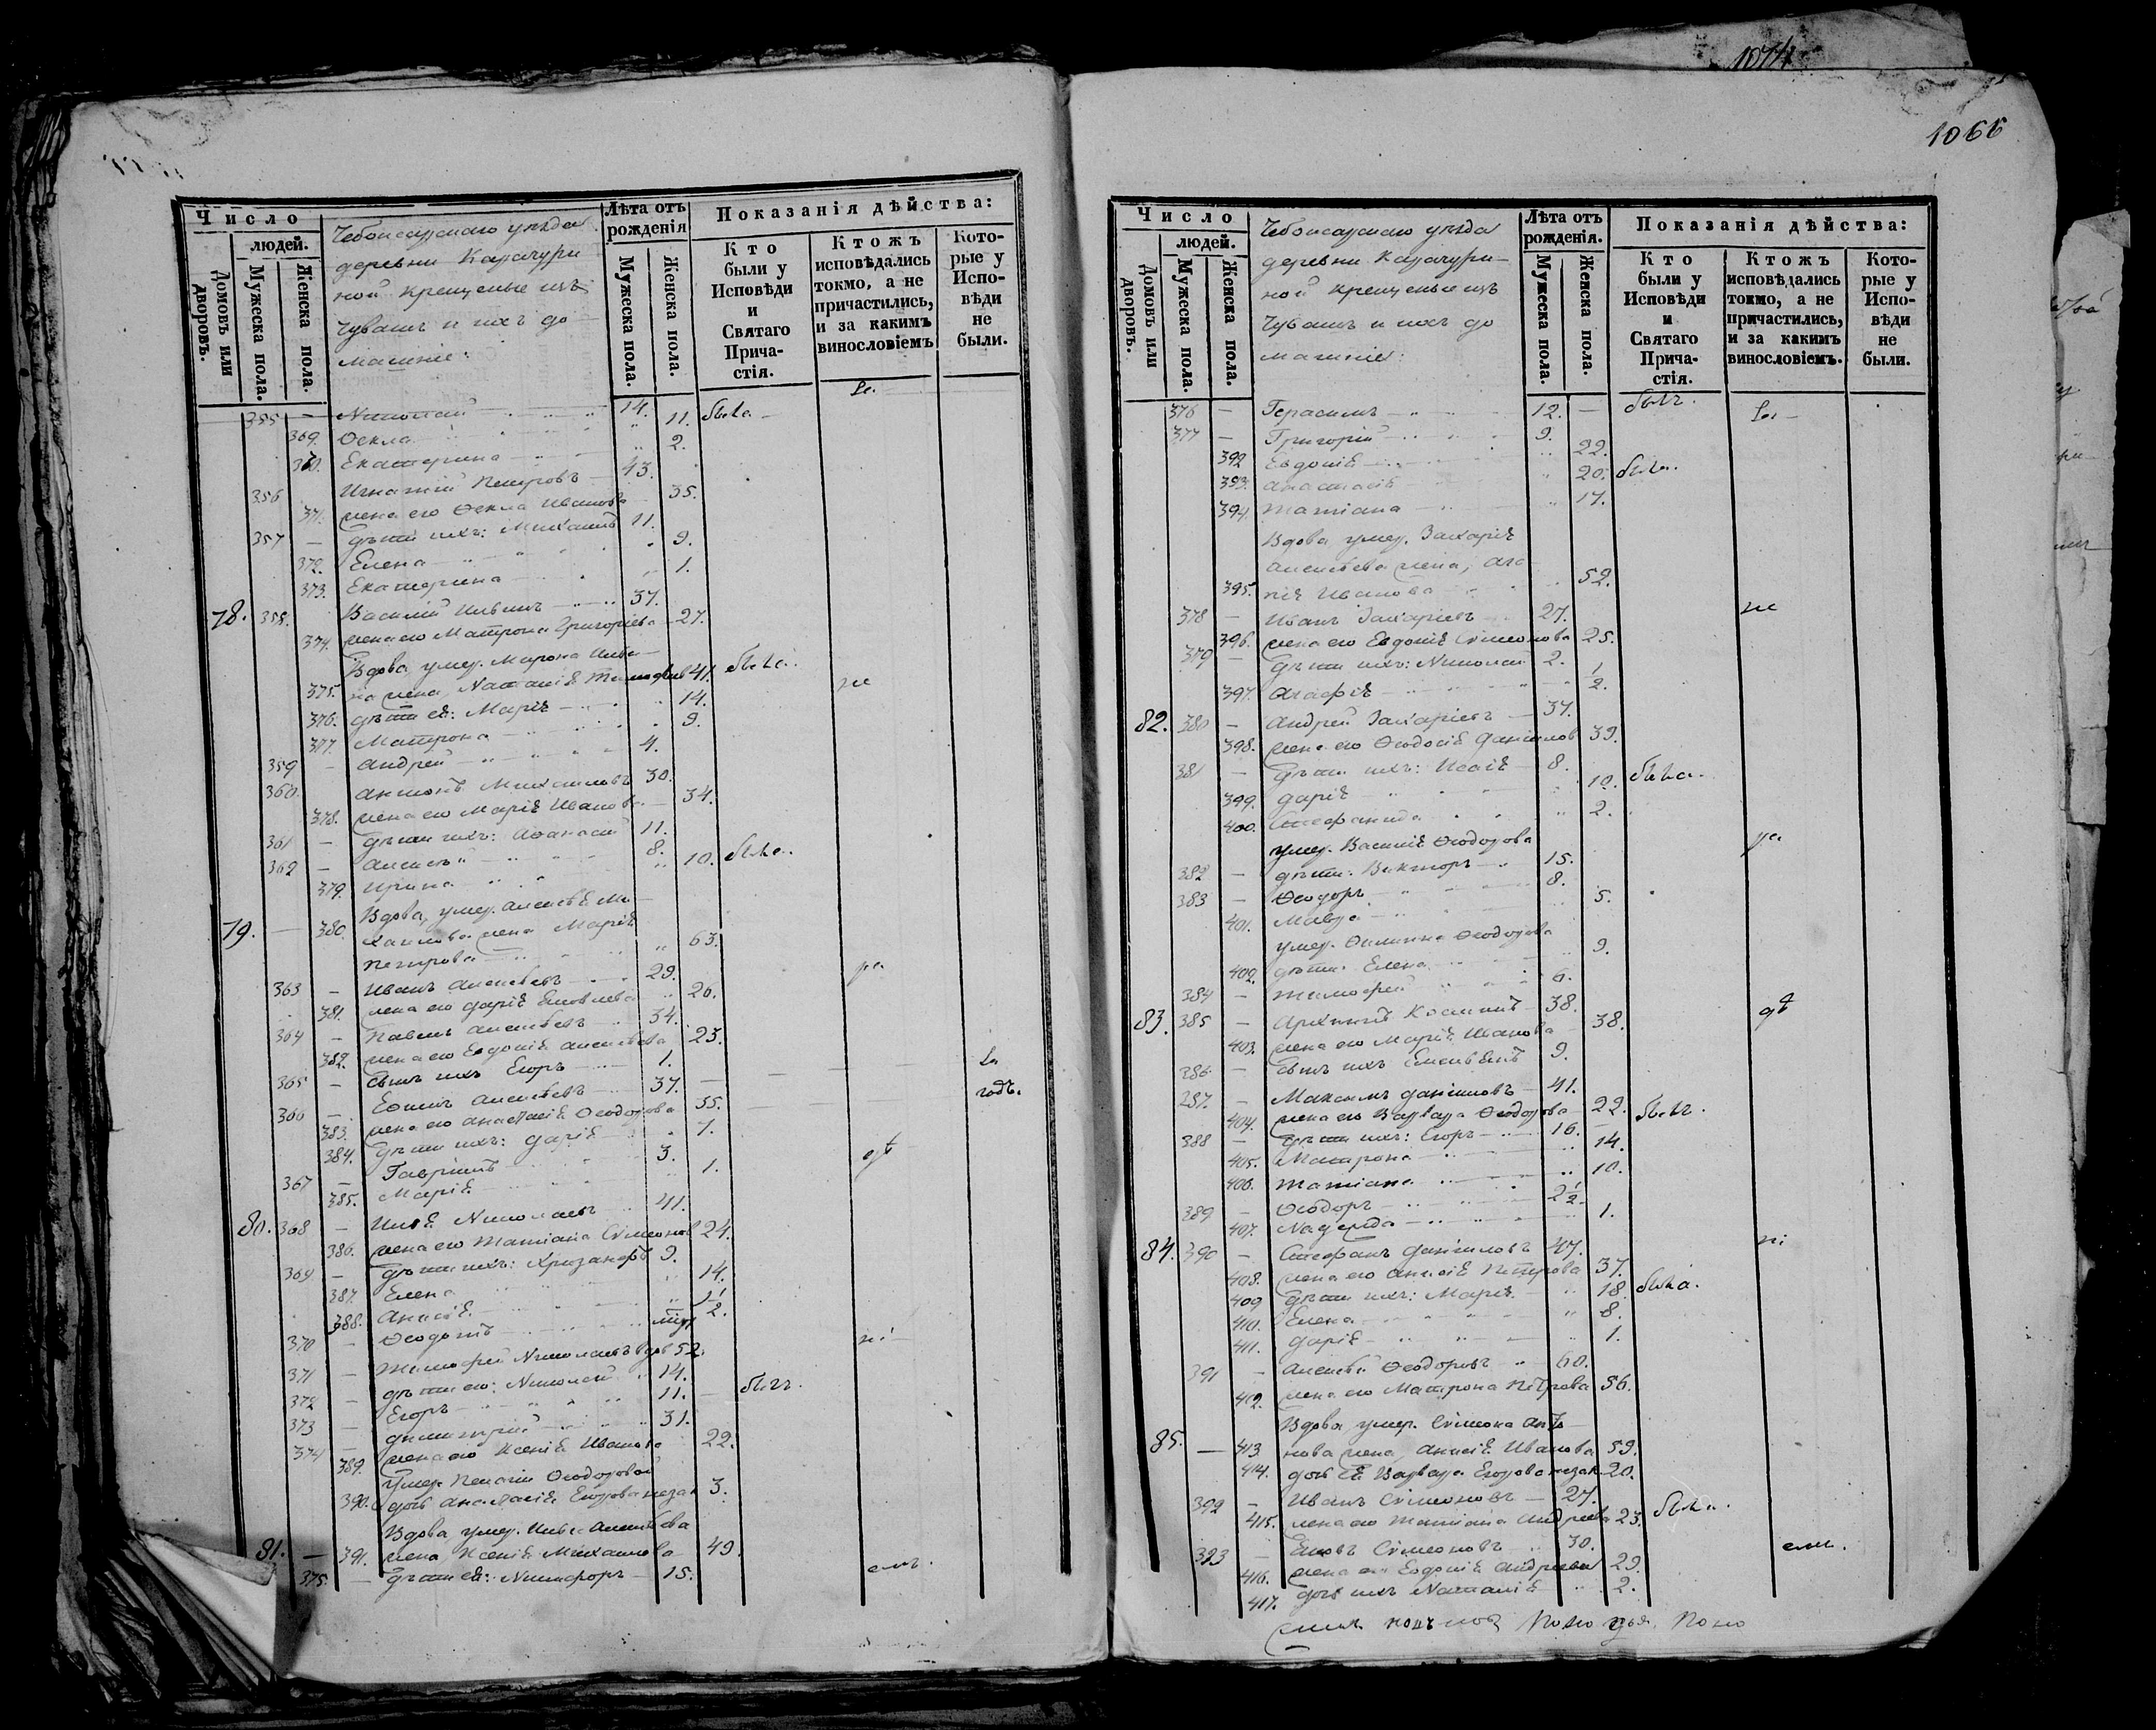 1066
Число
людей.
Домовъ или дворовъ.
Мужеска пола.
Женска пола.
Чебоксарскаго уѣзда
деревни Карачури
ной крещеные изъ
Чувашъ и ихъ до
машніе:
Лѣта отъ рожденія
Мужеска пола.
Женска пола.
Показанія дѣйства:
Кто были у Исповѣди и Святаго Прича- стія.
Ктожъ исповѣдались токмо, а не причастились, и за какимъ винословіемъ
Кото- рые у Испо- вѣди не были.
355 — Николай 14.
369. Ѳекла 11. была
370. Екатерина 2.
356 Игнатій Петровъ 43.
371. жена его Ѳекла Иванова 35.
357 — дѣти ихъ: Михаилъ 11.
372. Елена 9.
373. Екатерина 1.
78. 358. Василій 37.
374. жена его Матрона Григорьева 27.
Вдова умер. Мирона
375. жена, Наталія 41. была
376. дѣти ея: Марія 14.
377. Матрона 9.
359 — Андрей 4.
360. Антонъ Михаиловъ 30.
378. жена его Марія Иванова 34.
361 — дѣти ихъ: Аѳанасій 11.
362 — Алексѣй 8.
379. Ирина 10. была
Вдова, умер. Алексѣя Ми
79. — 380. хаилова жена Марія
Петрова 63.
363 — Иванъ Алексѣевъ 29.
381. жена его Дарія Яковлева 26.
364 — Павелъ Алексѣевъ 34.
382. жена его Евдокія Алексѣева 23.
365 — сынъ ихъ Егоръ 1.
366 — Ефимъ Алексѣевъ 37.
383. жена его Анастасія Ѳеодорова 35.
384. дѣти ихъ: Дарія 7.
367 — Гавріилъ 3.
385. Марія 1.
80. 368 — Илья Николаевъ 41.
386. жена его Татіана Сѵмеонов 24.
369 — дѣти ихъ: Хрисанфъ 9.
387. Елена 14.
388. Анисія 1½.
370 — Ѳеодотъ
371 — Тимофей Николаевъ вдов 52.
372 — дѣти его: Николай 14.
373 — Егоръ 11. былъ
374 — Димитрій 31.
389. жена его Ксенія Иванова 22.
умер. Пелагіи Ѳеодоровой
390. дочь Анастасія Егорова незак 3.
Вдова умер. Ильи Алексѣева
81. — 391. жена Ксенія Михаилова 49.
375. — дѣти ея: Никифоръ 15.
Число
людей.
Домовъ или дворовъ.
Мужеска пола.
Женска пола.
Чебоксарскаго уѣзда
деревни Карачури-
ной крещеные изъ
Чувашъ и ихъ до
машніе:
Лѣта отъ рожденія.
Мужеска пола.
Женска пола.
Показанія дѣйства:
Кто были у Исповѣди и Святаго Прича- стія.
Ктожъ исповѣдались токмо, а не причастились, и за какимъ винословіемъ.
Кото- рые у Испо- вѣди не были.
376 — Герасимъ 12. — былъ.
377 — Григорій 9.
392 Евдокія 22.
393. Анастасія 20. была.
394. Татіана 17.
Вдова умер. Захарія
Алексѣева жена, Ага
395. пія Иванова 52.
378 — Иванъ Захаріевъ 27.
396. жена его Евдокія Сѵмеонова 25.
379 — дѣти ихъ: Николай 2.
397. Агафія ½.
82. 380 — Андрей Захаріевъ 37.
398. жена его Ѳеодосія Даніилов 39.
381 — дѣти ихъ: Исаія 8.
399. Дарія 10. была.
400. Стефанида 2.
умер. Василія Ѳеодорова
382 — дѣти: Викторъ 15.
383 — Ѳеодоръ 8.
401. Мавра 5.
умер. Филиппа Ѳеодорова
402. дѣти: Елена 9.
384 — Тимофей 6.
83. 385 — Архипъ Косминъ 38.
403. жена его Марія Иванова 38.
386 — сынъ ихъ 9.
387. — Максимъ Даніиловъ 41.
404. жена его Варвара Ѳеодорова 22. былъ.
388 — дѣти ихъ: Егоръ 16.
405. Матрона 14.
406. Татіана 10.
389 — Ѳеодоръ 2½.
407. Надежда 1.
84. 390 — Стефанъ Даніиловъ 47.
408. жена его Анисія Петрова 37.
409 дѣти ихъ: Марія 18. была.
410. Елена 8.
411. Дарія 1.
391 — Алексѣй Ѳеодоровъ 60.
412. жена его Матрона Петрова 56.
Вдова умер. Сѵмеона Анто-
85. — 413 нова жена, Анисія Иванова 59.
414. дочь ея Варвара Егорова незак. 20.
392 — Иванъ Сѵмеоновъ 27.
415. жена его Татіана Андреева 23. была.
393 — Яковъ Сѵмеоновъ 30.
416. жена его Евдокія Андреева 29.
417. дочь ихъ Наталія 2.